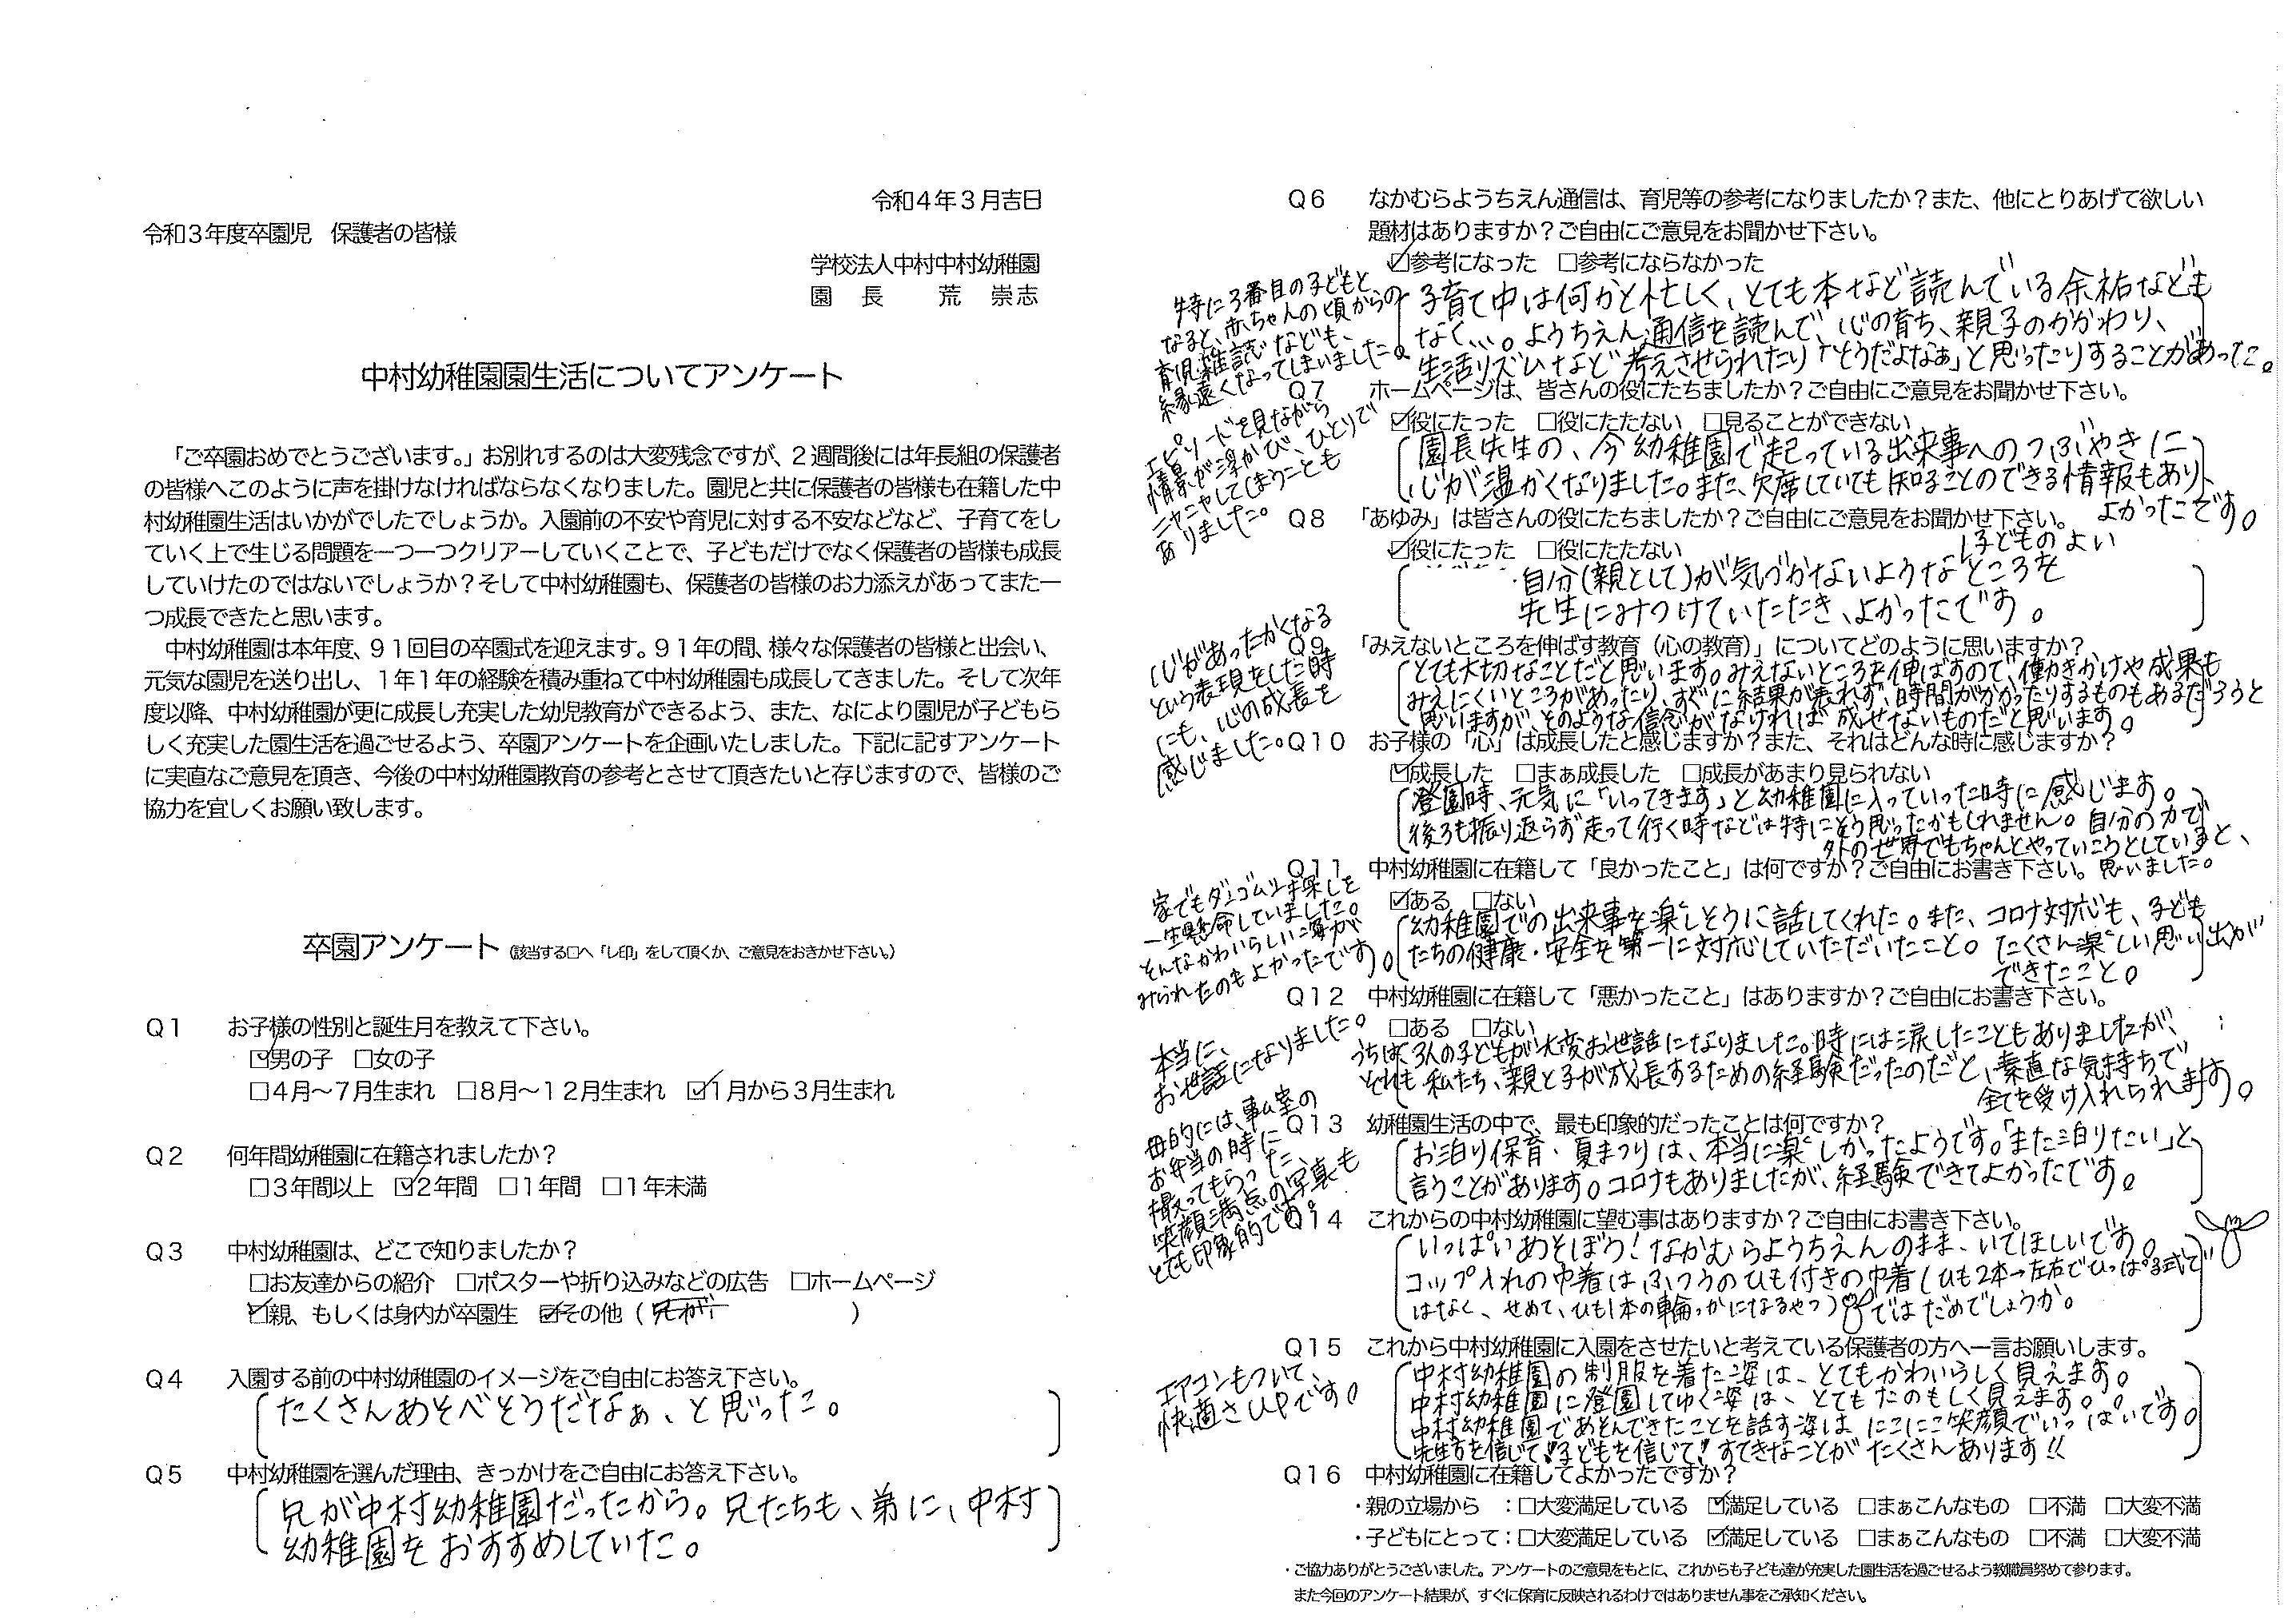 令和4年3月吉日
令和3年度卒園児　保護者の皆様
学校法人中村中村幼稚園
園　長　　荒　崇志
中村幼稚園園生活についてアンケート
「ご卒園おめでとうございます。」お別れするのは大変残念ですが、2週間後には年長組の保護者
の皆様へこのように声を掛けなければならなくなりました。園児と共に保護者の皆様も在籍した中
村幼稚園生活はいかがでしたでしょうか。入園前の不安や育児に対する不安などなど、子育てをし
ていく上で生じる問題を一つ一つクリアーしていくことで、子どもだけでなく保護者の皆様も成長
していけたのではないでしょうか？そして中村幼稚園も、保護者の皆様のお力添えがあってまた一
つ成長できたと思います。
中村幼稚園は本年度、91回目の卒園式を迎えます。91年の間、様々な保護者の皆様と出会い、
元気な園児を送り出し、1年1年の経験を積み重ねて中村幼稚園も成長してきました。そして次年
度以降、中村幼稚園が更に成長し充実した幼児教育ができるよう、また、なにより園児が子どもら
しく充実した園生活を過ごせるよう、卒園アンケートを企画いたしました。下記に記すアンケート
に実直なご意見を頂き、今後の中村幼稚園教育の参考とさせて頂きたいと存じますので、皆様のご
協力を宜しくお願い致します。
卒園アンケート（該当する□へ「レ印」をして頂くか、ご意見をおきかせ下さい。）
Q1　お子様の性別と誕生月を教えて下さい。
☑男の子　□女の子
□4月～7月生まれ　□8月～12月生まれ　☑1月から3月生まれ
Q2　何年間幼稚園に在籍されましたか？
□3年間以上　☑2年間　□1年間　□1年未満
Q3　中村幼稚園は、どこで知りましたか？
□お友達からの紹介　□ポスターや折り込みなどの広告　□ホームページ
☑親、もしくは身内が卒園生　☑その他（兄が　　　　）
Q4　入園する前の中村幼稚園のイメージをご自由にお答え下さい。
たくさんあそべそうだなぁ、と思った。
Q5　中村幼稚園を選んだ理由、きっかけをご自由にお答え下さい。
兄が中村幼稚園だったから。兄たちも、弟に、中村
幼稚園をおすすめしていた。
Q6　なかむらようちえん通信は、育児等の参考になりましたか？また、他にとりあげて欲しい
題材はありますか？ご自由にご意見をお聞かせ下さい。
☑参考になった　□参考にならなかった
子育て中は何かと忙しく、とても本など読んでいる余裕なども
なく…。ようちえん通信を読んで、心の育ち、親子のかかわり、
生活リズムなど考えさせられたり「そうだよなぁ」と思ったりすることがあった。
特に3番目の子どもと
なると、赤ちゃんの頃からの
育児雑誌なども、
縁遠くなってしまいました。
Q7　ホームページは、皆さんの役にたちましたか？ご自由にご意見をお聞かせ下さい。
☑役にたった　□役にたたない　□見ることができない
園長先生の、今幼稚園で起っている出来事へのつぶやきに
心が温かくなりました。また、欠席していても知ることのできる情報もあり、
よかったです。
エピソードを見ながら
情景が浮かび、ひとりで
ニヤニヤしてしまうことも
ありました。
Q8　「あゆみ」は皆さんの役にたちましたか？ご自由にご意見をお聞かせ下さい。
☑役にたった　□役にたたない
子どものよい
自分(親として)が気づかないようなところを
先生にみつけていただき、よかったです。
Q9　「みえないところを伸ばす教育（心の教育）」についてどのように思いますか？
とても大切なことだと思います。みえないところを伸ばすので、働きかけや成果も
みえにくいところがあったり、すぐに結果が表れず、時間がかかったりするものもあるだろうと
思いますが、そのような信念がなければ成せないものだと思います。
心があったかくなる
という表現をした時
にも、心の成長を
感じました。
Q10　お子様の「心」は成長したと感じますか？また、それはどんな時に感じますか？
☑成長した　□まぁ成長した　□成長があまり見られない
登園時、元気に「いってきます」と幼稚園に入っていった時に感じます。
後ろも振り返らず走って行く時などは特にそう思ったかもしれません。自分の力で
外の世界でもちゃんとやっていこうとしていると、
思いました。
Q11　中村幼稚園に在籍して「良かったこと」は何ですか？ご自由にお書き下さい。
☑ある　□ない
幼稚園での出来事を楽しそうに話してくれた。また、コロナ対応も、子ども
たちの健康・安全を第一に対応していただいたこと。たくさん楽しい思い出が
できたこと。
家でもダンゴムシ探しを
一生懸命していました。
そんなかわいらしい姿が
みられたのもよかったです。
Q12　中村幼稚園に在籍して「悪かったこと」はありますか？ご自由にお書き下さい。
□ある　□ない
うちは、3人の子どもが大変お世話になりました。時には涙したこともありましたが、
それも私たち、親と子が成長するための経験だったのだと、素直な気持ちで
全てを受け入れられます。
本当に、
お世話になりました。
Q13　幼稚園生活の中で、最も印象的だったことは何ですか？
お泊り保育・夏まつりは、本当に楽しかったようです。「また泊りたい」と
言うことがあります。コロナもありましたが、経験できてよかったです。
母的には、事ム室の
お弁当の時に
撮ってもらった、
笑顔満点の写真も
とても印象的です。
Q14　これからの中村幼稚園に望む事はありますか？ご自由にお書き下さい。
いっぱいあそぼう！なかむらようちえんのまま、いてほしいです。
コップ入れの巾着はふつうのひも付きの巾着(ひも2本→左右でひっぱる式で
はなく、せめて、ひも1本の輪っかになるやつ)ではだめでしょうか。
Q15　これから中村幼稚園に入園をさせたいと考えている保護者の方へ一言お願いします。
中村幼稚園の制服を着た姿は、とてもかわいらしく見えます。
中村幼稚園に登園してゆく姿は、とてもたのもしく見えます。
中村幼稚園であそんできたことを話す姿は、にこにこ笑顔でいっぱいです。
先生方を信じて！子どもを信じて！すてきなことがたくさんあります!!
エアコンもついて、
快適さUPです。
Q16　中村幼稚園に在籍してよかったですか？
・親の立場から　：□大変満足している　☑満足している　□まぁこんなもの　□不満　□大変不満
・子どもにとって：□大変満足している　☑満足している　□まぁこんなもの　□不満　□大変不満
・ご協力ありがとうございました。アンケートのご意見をもとに、これからも子ども達が充実した園生活を過ごせるよう教職員努めて参ります。
また今回のアンケート結果が、すぐに保育に反映されるわけではありません事をご承知ください。